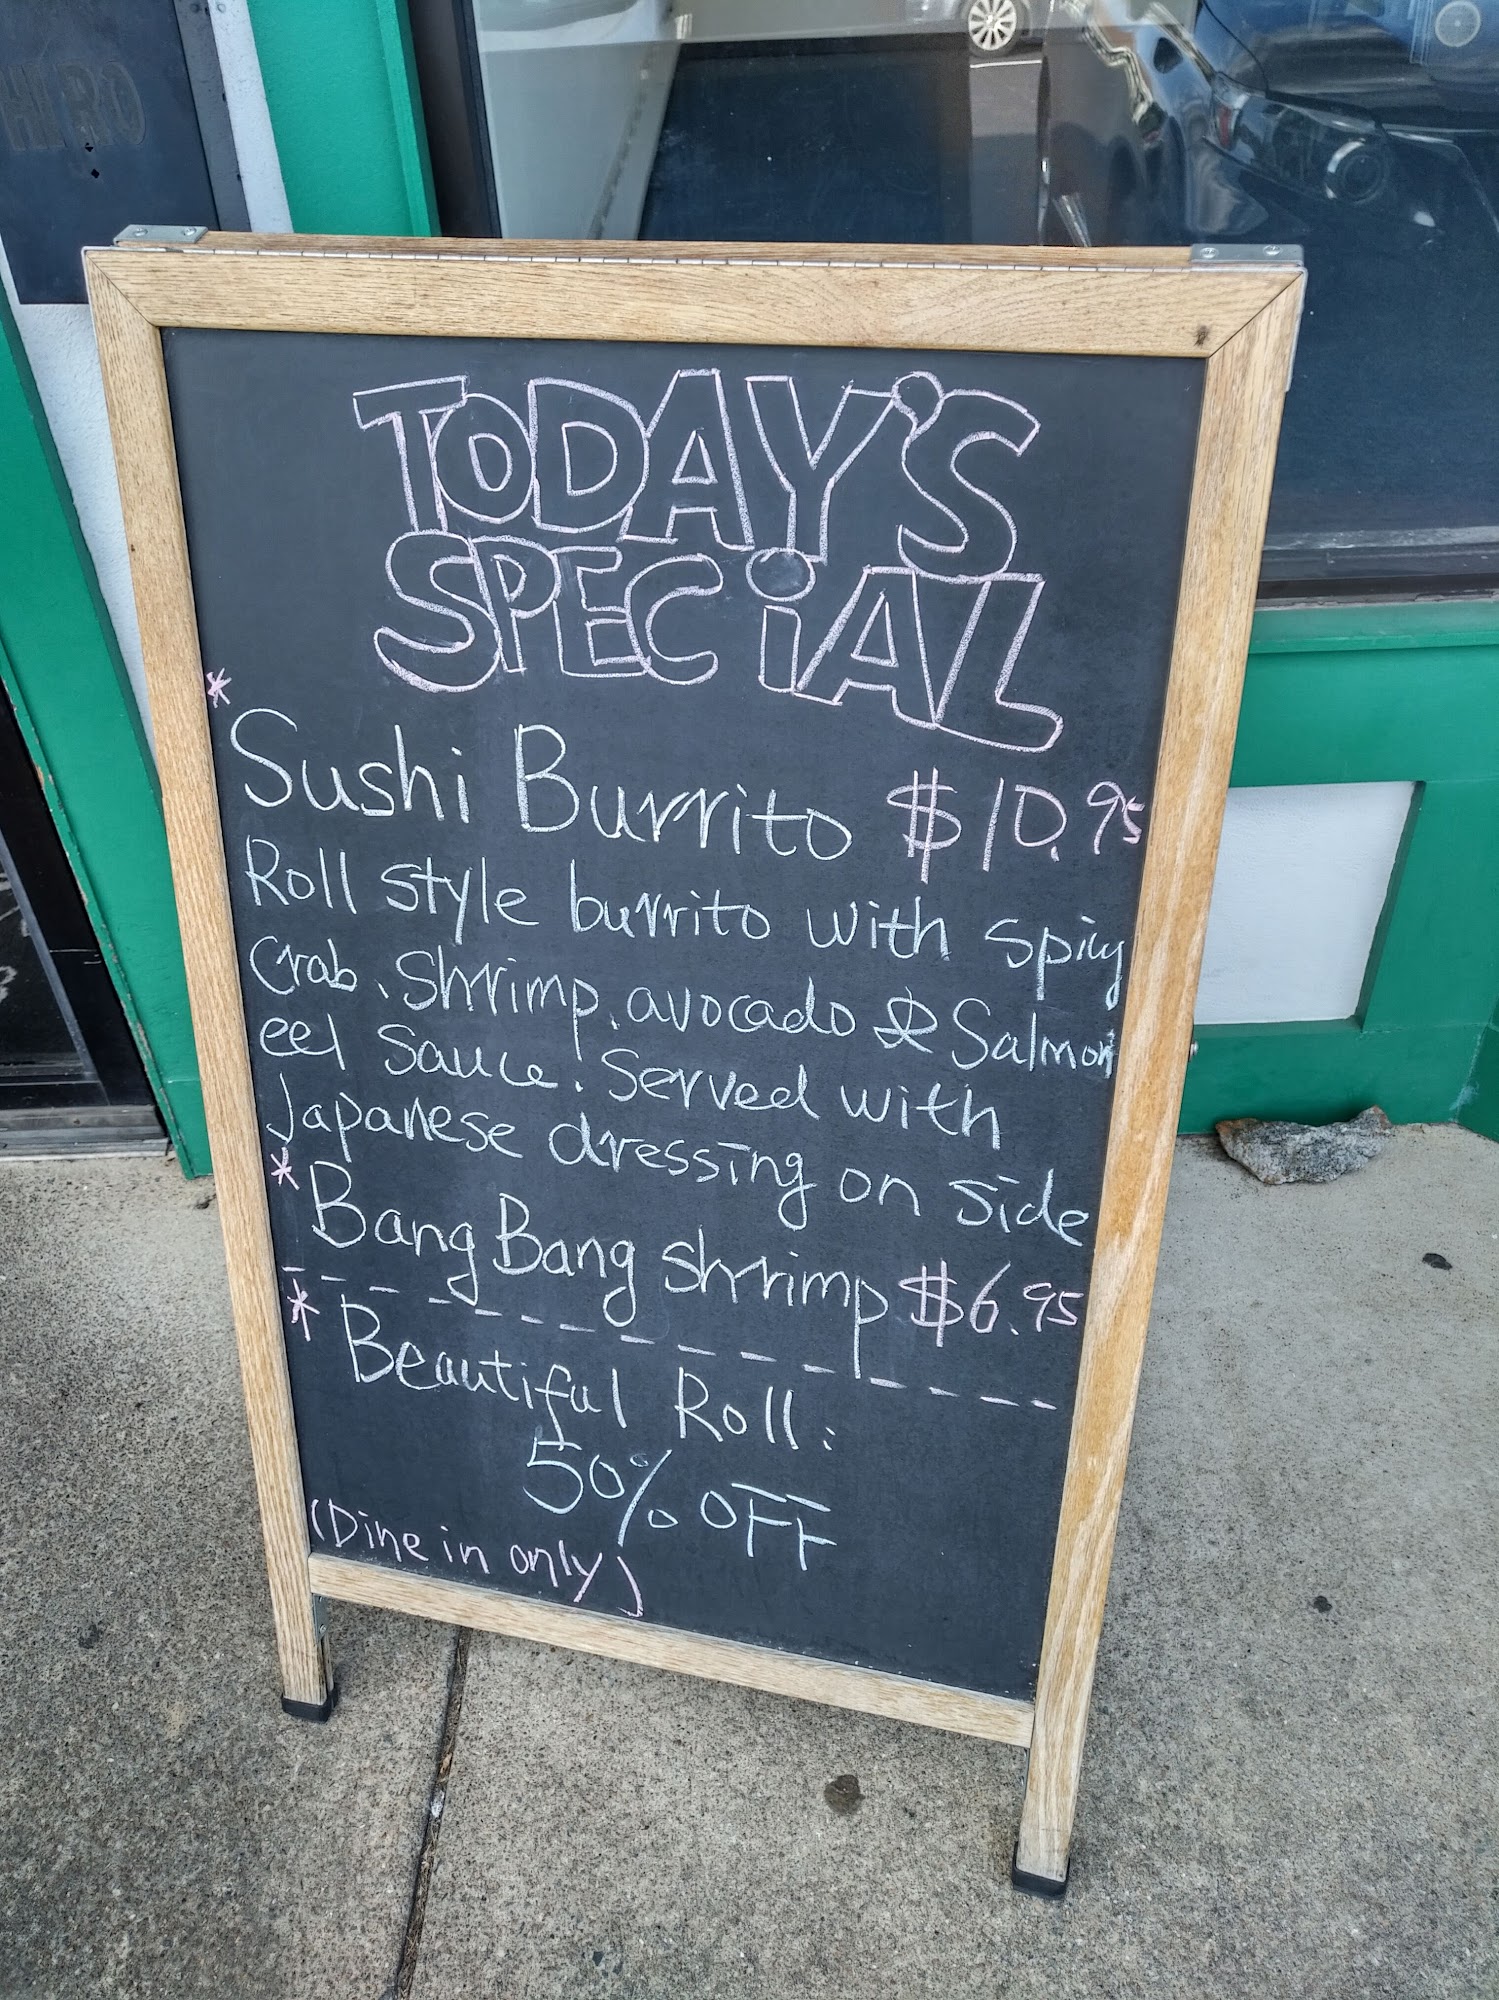 TODAY'S
SPECiAL
* Sushi Burrito $10.95
Roll style burrito with spicy
Crab, shrimp, avocado & Salmon
eel Sauce. Served with
Japanese dressing on side
* Bang Bang shrimp $6.95
* Beautiful Roll:
50% OFF
(Dine in only)